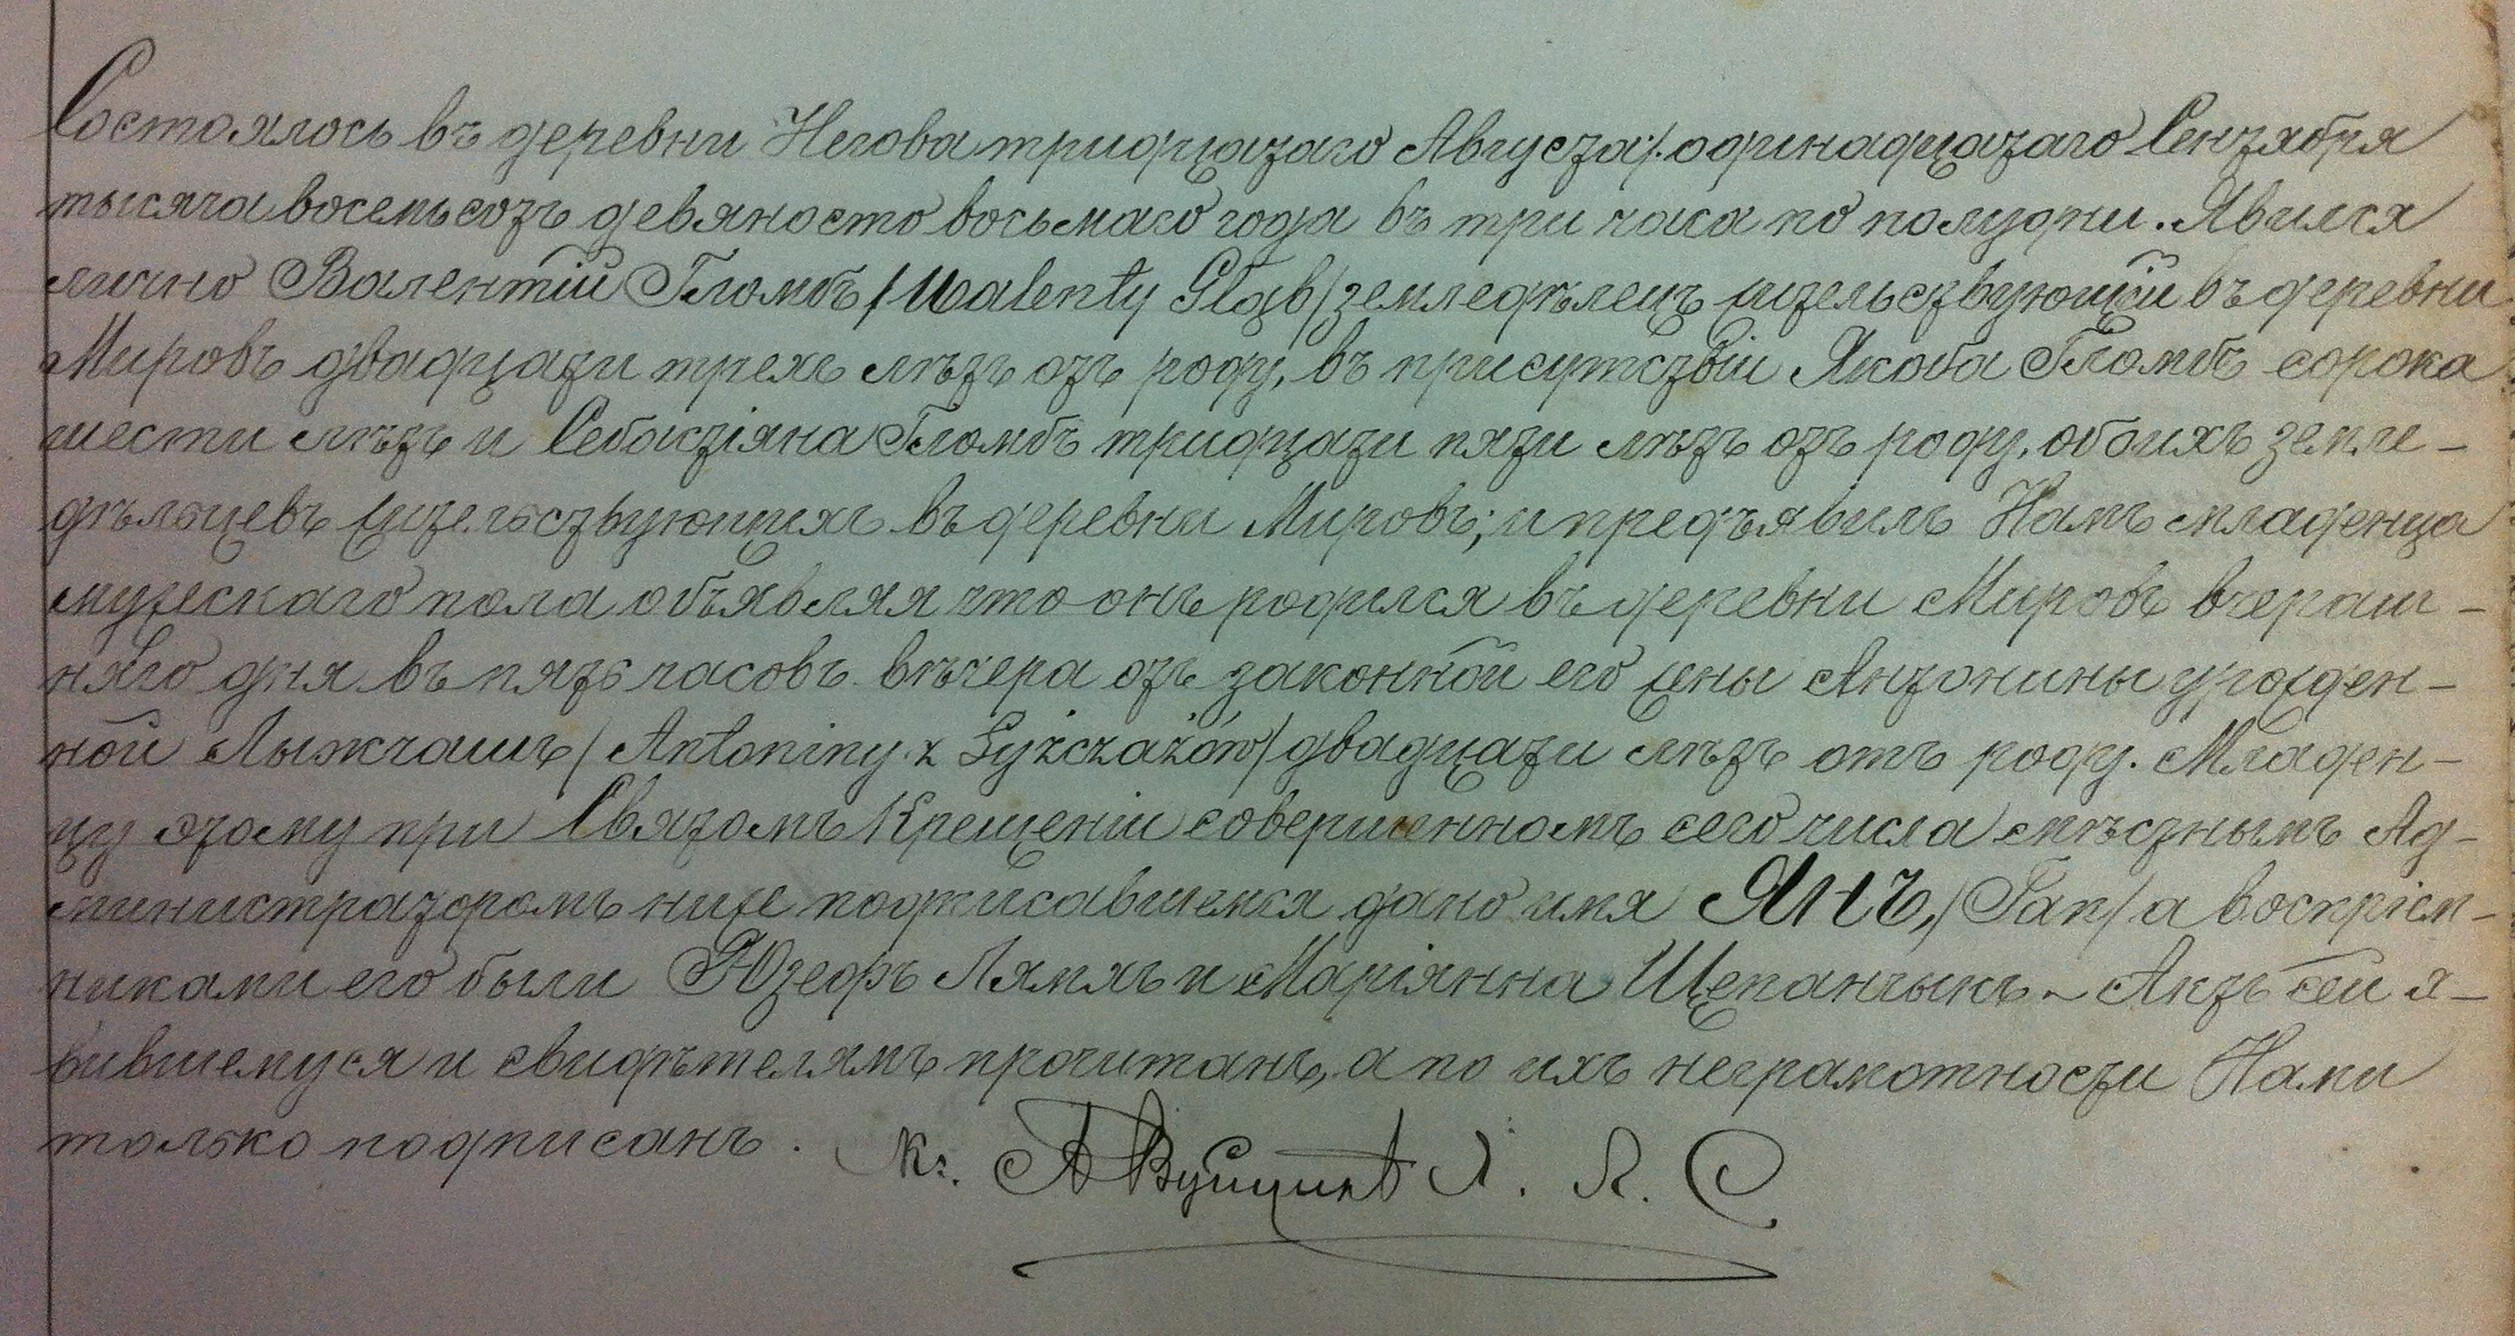 Состоялось въ деревни Негова тридцатаго Августа /. одинадцатаго Сентября
тысяча восемьсотъ девяносто восьмаго года въ три часа по полудни. Явился
лично Валентій Гломбъ /Walenty Głąb/ земледѣлецъ жительствующій въ деревни
Мировъ двадцати трехъ лѣтъ отъ роду, въ присутствіи Якоба Гломбъ сорока
шести лѣтъ и Себастіяна Гломбъ тридцати пяти лѣтъ отъ роду, обоихъ земле-
дѣльцевъ жительствующихъ въ деревни Мировъ; и предъявилъ Намъ младенца
мужескаго пола объявляя что онъ родился въ деревни Мировъ вчераш-
няго дня въ пять часовъ вѣчера отъ законной его жены Антонины урожден-
ной Лыжчашъ /Antoniny z Łyżczażów/ двадцати лѣтъ отъ роду. Младен-
цу этому при Святомъ Крещеніи совершенномъ сего числа мѣстнымъ Ад-
министраторомъ ниже подписавшемся дано имя ЯНЪ, /Jan/ а воспріем-
никами его были Юзефъ Лямхъ и Маріянна Щепанчыкъ. ~ Актъ сей я-
вившемуся и свидѣтелямъ прочитанъ, а по ихъ неграмотности Нами
только подписанъ. Кс. А